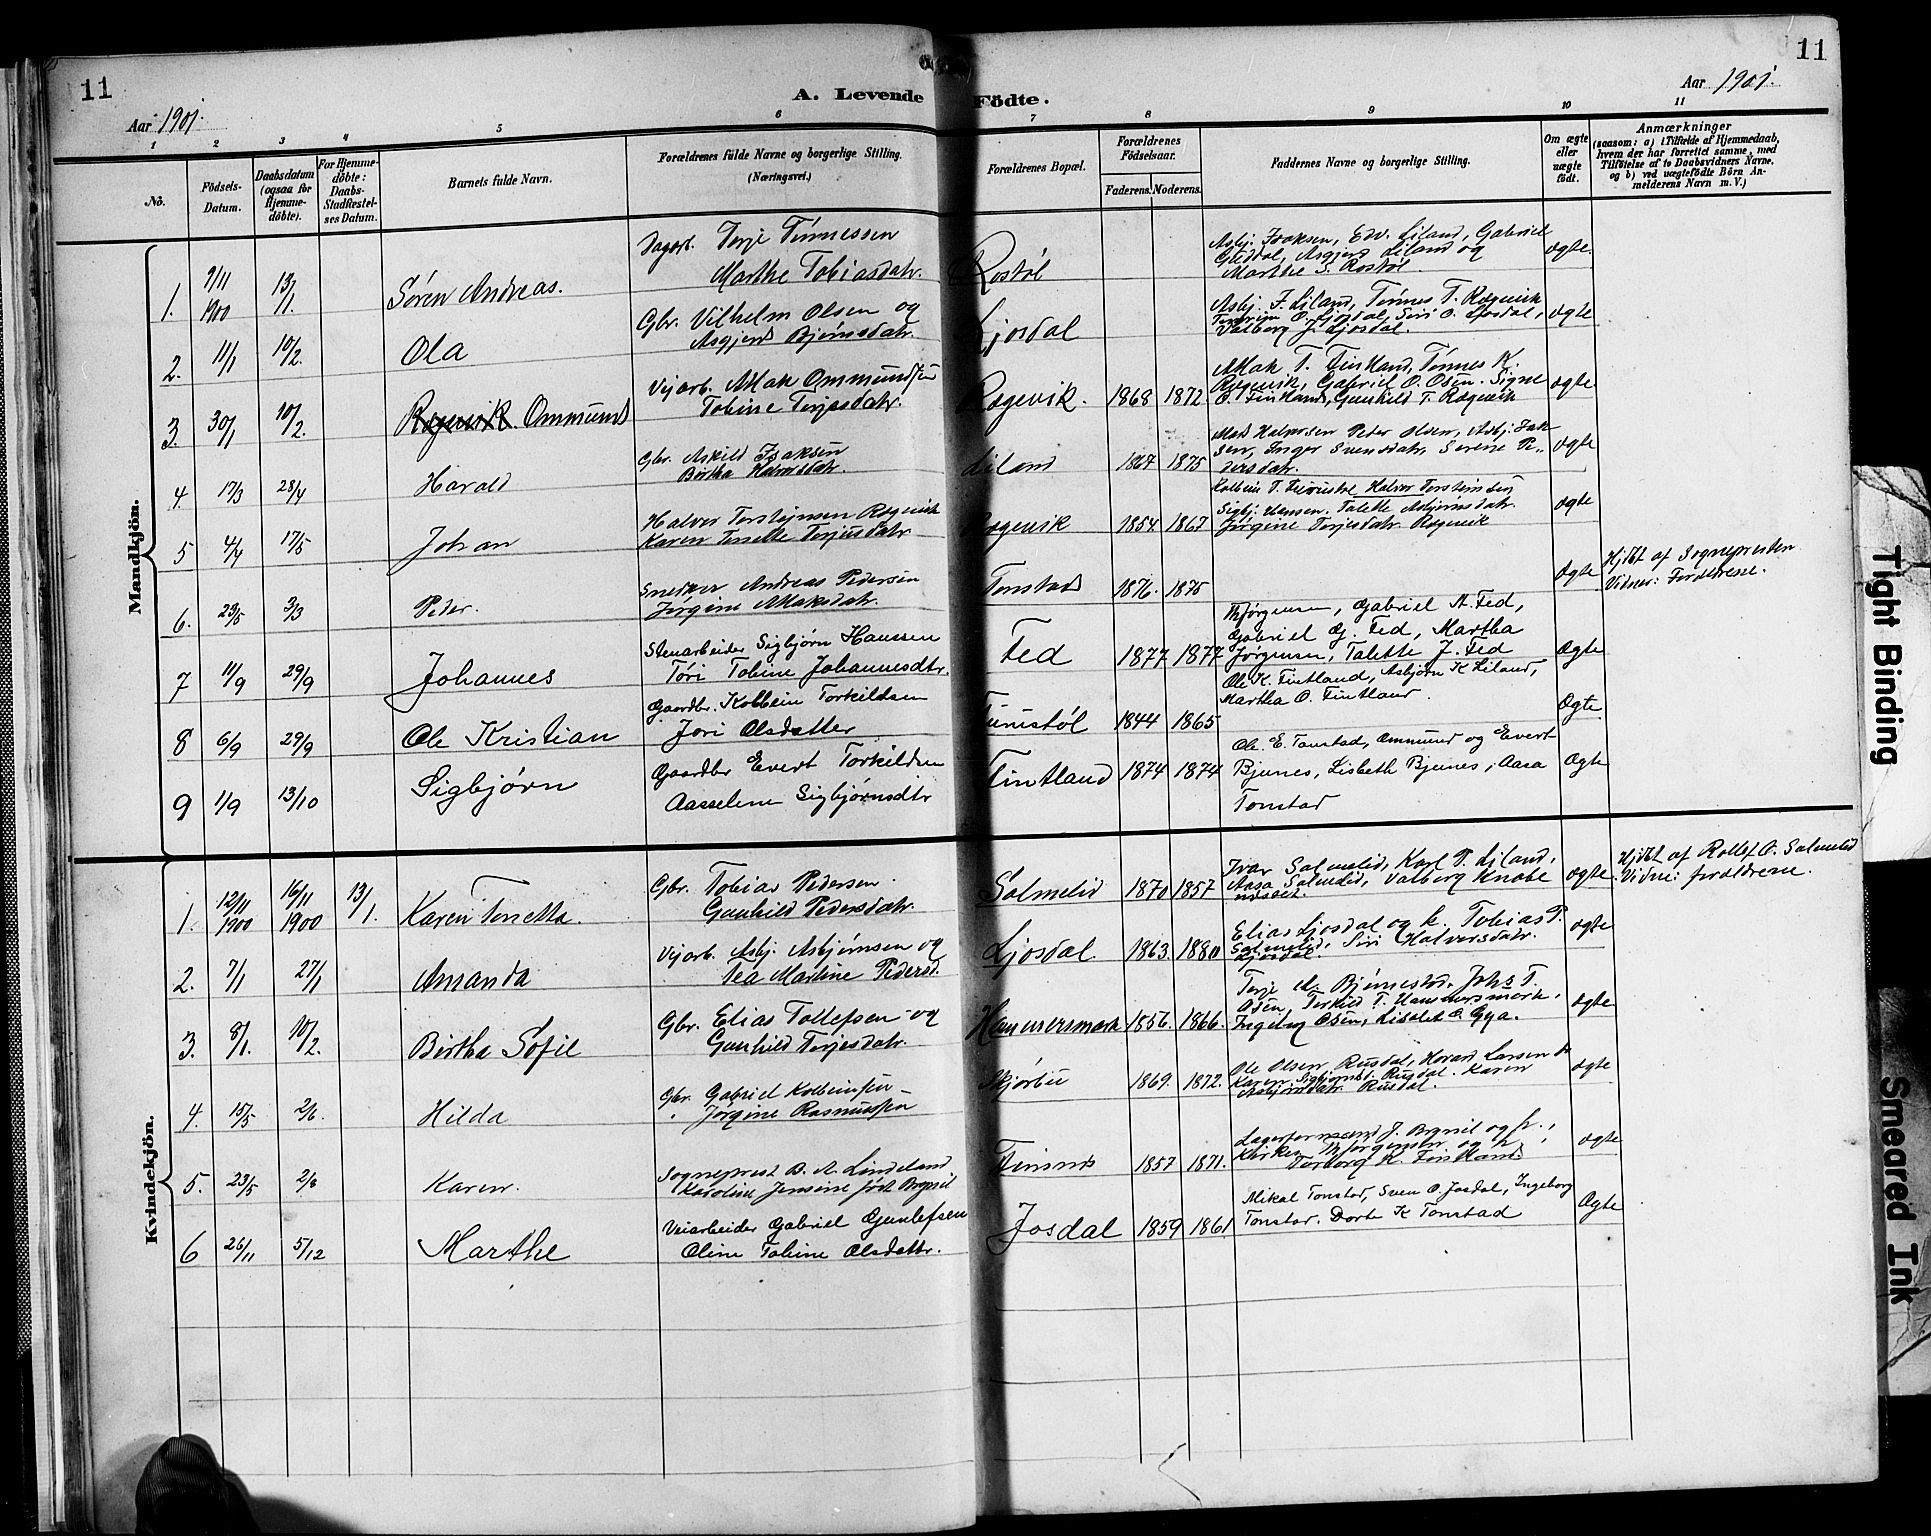 11
11
A. Levende Födte.
Aar 1901.
Aar 1901.
1 2 3 4 5 6 7 8 9 10 11
No.
Födsels-Datum.
Daabsdatum (ogsaa for Hjemme-döbte).
For Hjemme-döbte: Daabs-Stadfæstel-ses Datum.
Barnets fulde Navn.
Forældrenes fulde Navne og borgerlige Stilling.
(Næringsvei.)
Forældrenes Bopæl.
Forældrenes Födselsaar.
Faderens. Moderens.
Faddernes Navne og borgerlige Stilling.
Om ægte eller uægte födt.
Anmærkninger
(saasom: a) i Tilfælde af Hjemmedaab, hvem der har forrettet samme, med Tilföielse af to Daabsvidners Navne, og b) ved uægtefödte Börn An-melderens Navn m. V.)
Mandkjön.
1. 9/11 1900 13/1 Søren Andreas. Dagarb. Terje Tønnessen
Marthe Tobiasdatr. Rostøl
Asbj. Isaksen, Edv. Liland, Gabriel
Asgjerd Liland og
Marthe S. Rostøl. ægte.
2. 11/1 10/2 Ola Gbr. Vilhelm Olsen og
Asgjerd Bjørnsdatr. Ljosdal
Asbj. F. Liland, Tønnes T. Rægevik
O. Ljosdal, Siri O. Ljosdal,
Valborg J. Ljosdal. ægte
3. 30/1 10/2. Rægevik. Ommund Vejarb. Atlak Ommundsen
Tobine Terjesdatr. Rægevik. 1868 1872.
Atlak T. Fintland, Tønnes K.
Rægevik, Gabriel O. Osen. Signe
O. Fintland, Gunhild T. Rægevik ægte
4. 17/3 28/4 Harald Gbr. Askild Isaksen
Bertha Halvorsdatr. Liland 1867 1875
Mads Halvorsen Peder Olsen, Asbj. Isak
sen, Inger Svensdatr, Serene Pe-
dersdatr. ægte
5 4/4 17/5 Johan Halvor Torstejnsen Rægevik
Karen Tonette Terjesdatr. Rægevik 1854 1867
Kolbein T. Halvor Torsteinsen
Sigbj. Hansen. Talette Asbjørnsdatr.
Jørgine Terjesdatr. Rægevik ægte
6. 29/5 3/3 Peder. Snedker Andreas Pedersen
Jørgine Atlaksdatr. Tonstad 1876. 1875 ægte
Hjdbt af Sognepresten
Vidner: Forældrene.
7 11/9 29/9 Johannes Stenarbeider Sigbjørn Hanssen
Tøri Tobine Johannesdtr. Fed 1877 1877
Th Jørgensen, Gabriel A. Fed,
Gabriel G. Fed, Martha
Jørgensen, Talette J. Fed Ægte
8 6/9 29/9 Ole Kristian Gaardbr. Kolbein Torkildsen
Jori Olsdatter Funistøl 1844 1865
Ole K. Fintland, Asbjørn K Liland,
Martha O. Fintland. Ægte
9 1/9 13/10 Sigbjørn Gaardbr Evert Torkildsen
Aasselene Sigbjørnsdtr Fintland 1874 1874
Ole. E. Tonstad, Ommund og Evert
Bjunes, Lisbeth Bjunes, Aasa
Tonstad Ægte
Kvindekjön.
1. 12/11 1900 16/11 1900 13/1. Karen Tonetta. Gbr. Tobias Pedersen.
Gunhild Pedersdatr. Salmelid 1870 1857
Ivar Salmelid, Karl T. Liland,
Aasa Salmelid, Valborg Knabe
ægte.
Hjdbt af Rollef O. Salmelid
Vidne: forældrene.
2. 7/1 27/1 Amanda Vejarb. Asbj. Asbjørnsen og
Tea Martine Pedersd. Ljosdal. 1863 1880
Elias Ljosdal og k. Tobias P.
Salmelid, Siri Halvorsdatr.
Ljosdal. ægte
3. 8/1. 10/2. Birtha Sofie Gbr. Elias Tollefsen og
Gunhild Terjesdatr. Hammersmark 1856. 1866.
Terje A. Bjørnestad, Johs T.
Osen, Terkild T. Hammersmark,
Ingeborg Osen, Lisabet O. Gya. ægte
4. 15/5 2/6. Hilda Gbr. Gabriel Kolbeinsen
" Jørgine Rasmussen Skjørbu 1869. 1872.
Ole Olsen Rusdal, Havard Larsen
Karen Sigbjørnsd. Rusdal. Karen
Asbjørnsdatr. Rusdal. ægte
5. 23/5 2/8 Karen. Sogneprest B. A. Lindeland
Karoline Jensine født Brynil Finsnes 1857 1871.
Lagerformand J. Brynil og fr.,
Kirkes. Th Jørgensen og h,
Torborg K. Fintland ægte
6 26/11 5/12 Marthe Veiarbeider Gabriel Gunlefsen
Oline Tobine Olsdattr. Josdal 1859 1861
Mikal Tonstad, Sven O. Josdal, Ingeborg
Tonstad. Dorte K Tonstad Ægte
Tight Binding
Smeared Ink